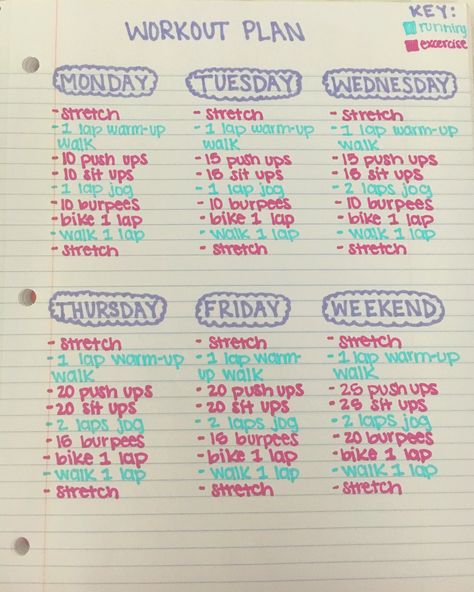 WORKOUT PLAN
KEY:
running
excercise
MONDAY
- stretch
- 1 lap warm-up
walk
- 10 push ups
- 10 sit ups
- 1 lap jog
- 10 burpees
- bike 1 lap
- walk 1 lap
- stretch
TUESDAY
- stretch
- 1 lap warm-up
walk
- 15 push ups
- 15 sit ups
- 1 lap jog
- 10 burpees
- bike 1 lap
- walk 1 lap
- stretch
WEDNESDAY
- stretch
- 1 lap warm-up
walk
- 15 push ups
- 15 sit ups
- 2 laps jog
- 10 burpees
- bike 1 lap
- walk 1 lap
- stretch
THURSDAY
- stretch
- 1 lap warm-up
walk
- 20 push ups
- 20 sit ups
- 2 laps jog
- 15 burpees
- bike 1 lap
- walk 1 lap
- stretch
FRIDAY
- stretch
- 1 lap warm-
up walk
- 20 push ups
- 20 sit ups
- 2 laps jog
- 15 burpees
- bike 1 lap
- walk 1 lap
- stretch
WEEKEND
- stretch
- 1 lap warm-up
walk
- 25 push ups
- 25 sit ups
- 2 laps jog
- 20 burpees
- bike 1 lap
- walk 1 lap
- stretch